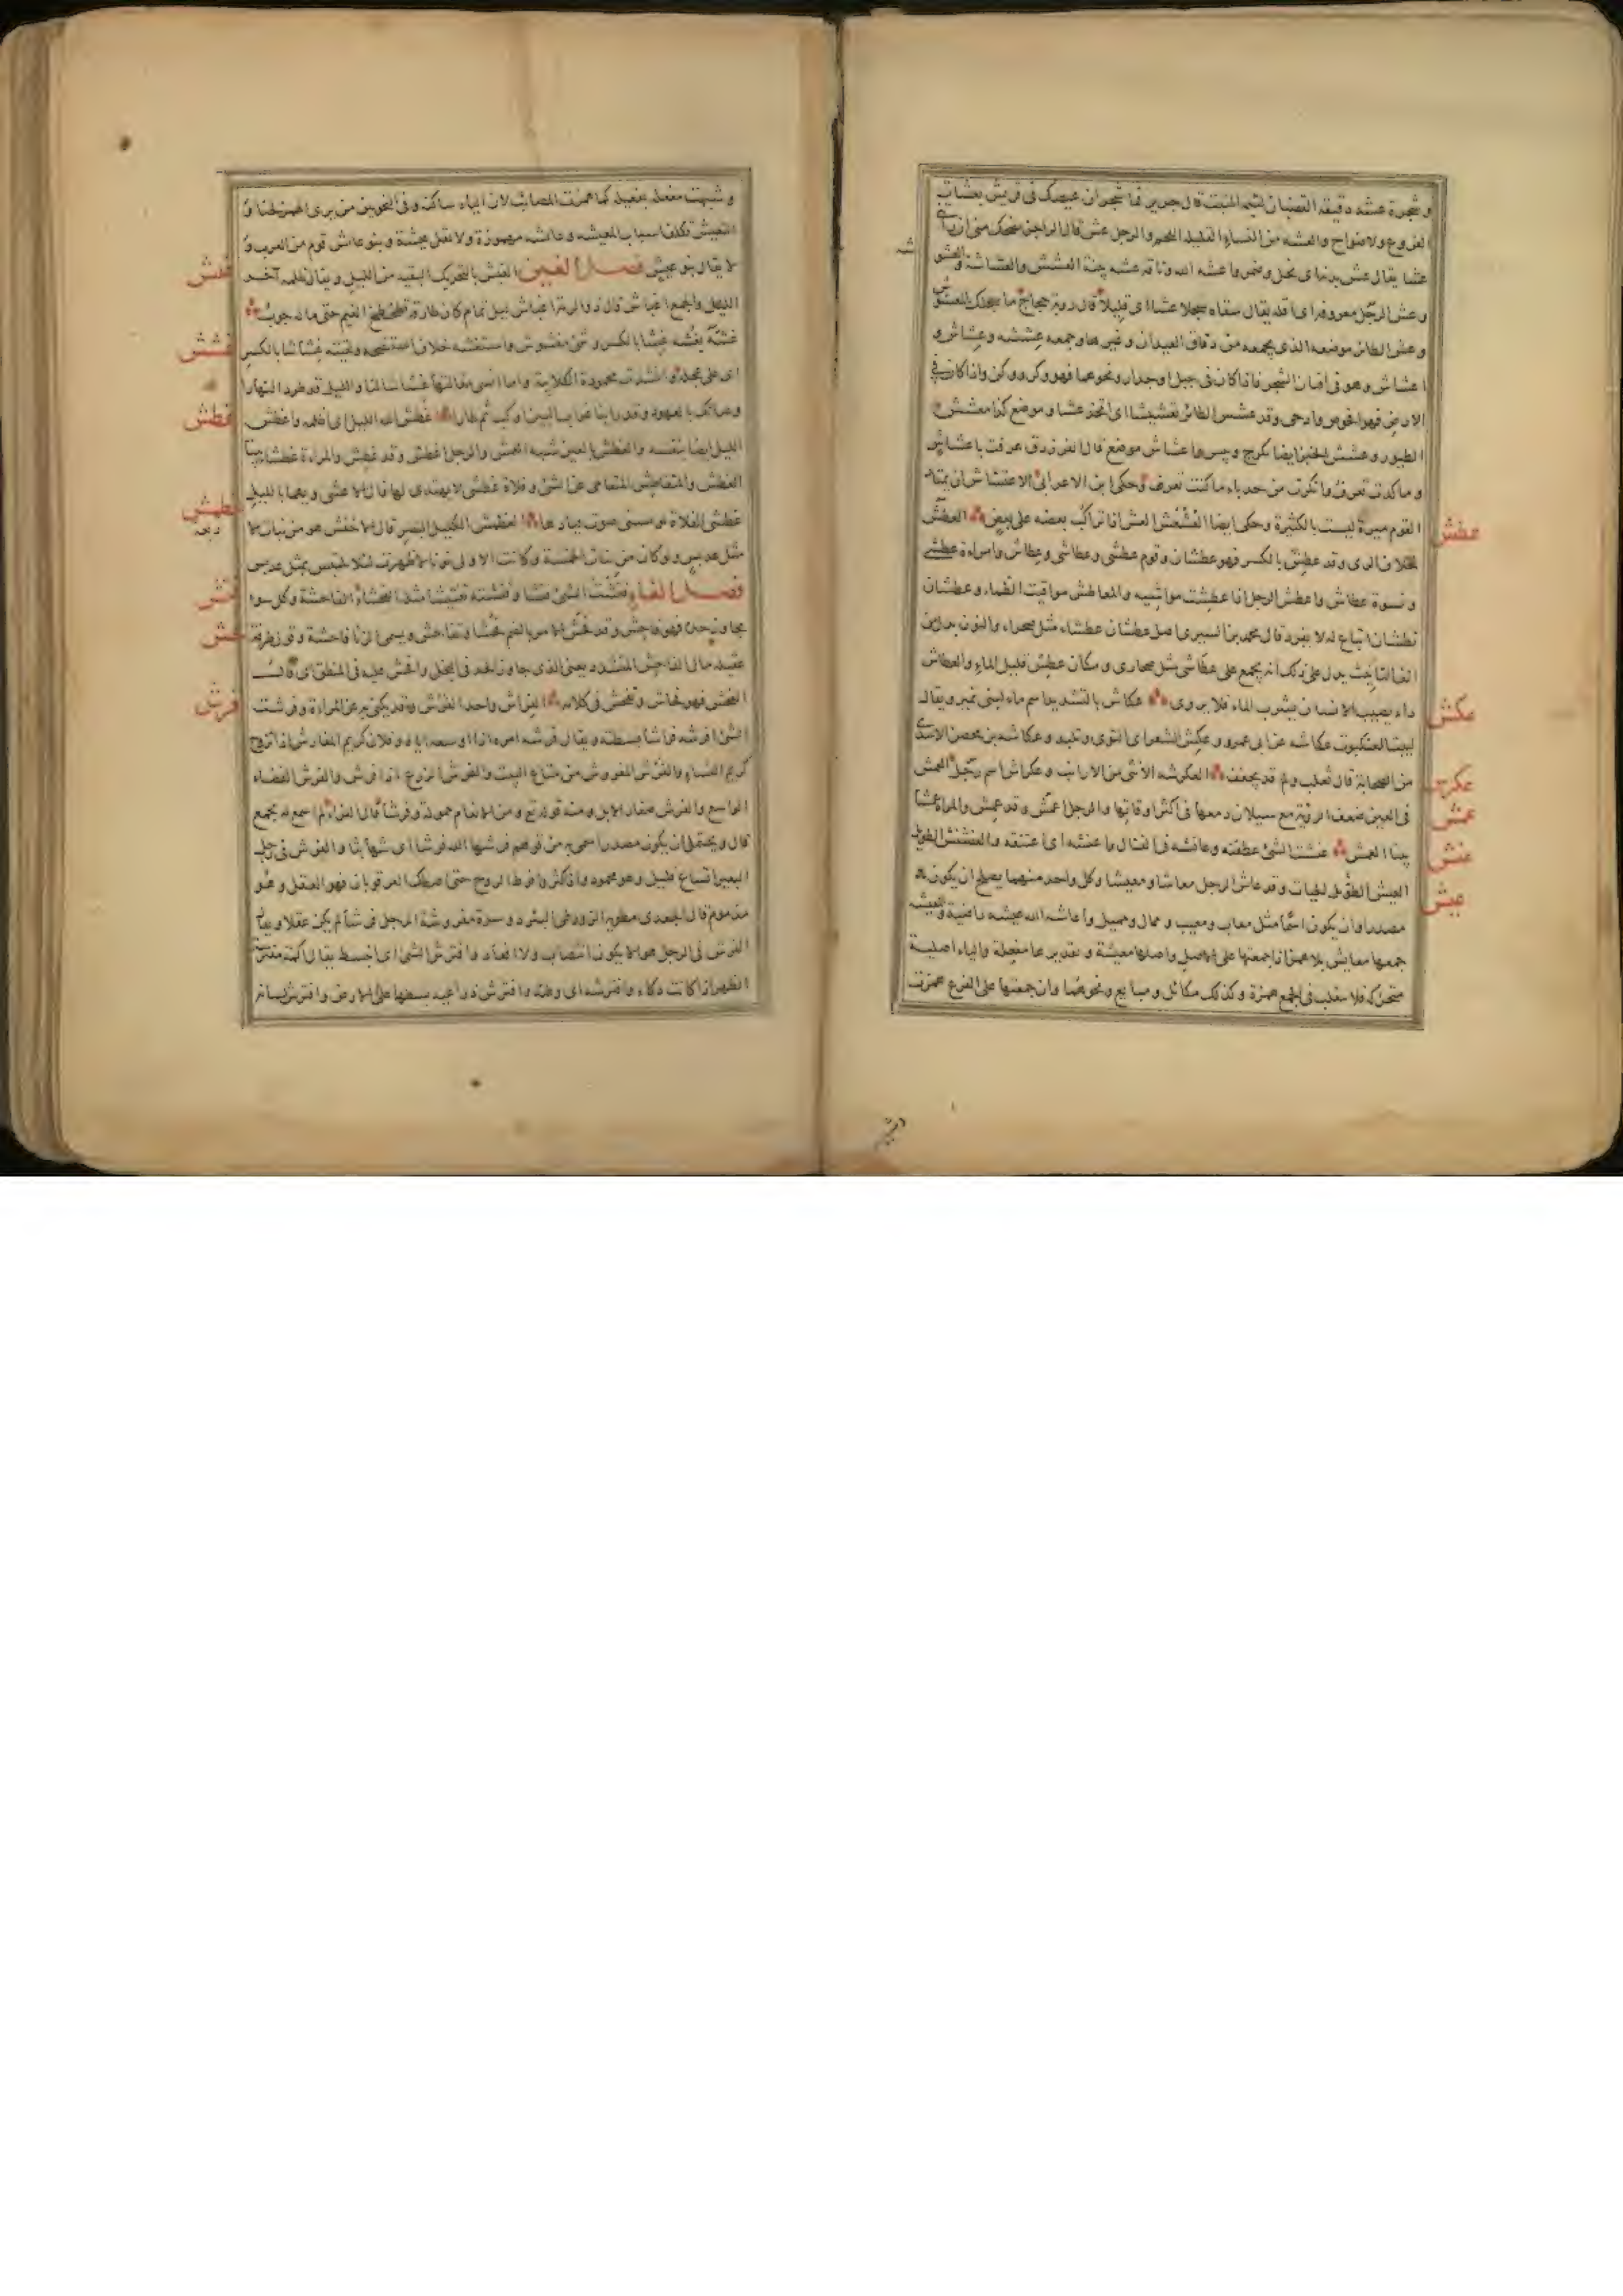 و شجرة عشه دقيقه القضبان لئيمة المنبت قال جرير فما شجرات عيصك في قريش بعشات
الفروع ولا ضواح والعشه من النساء القليلة اللحم والرجل عش قال الراجز تضحك مني ان رأت
عشا يقال عش بدنه اى نحل وضمر واعشه الله وناقه عشه بينة العشش والعشاشة والعشو
وعش الرجل معروفه اى اقله يقال سقاه سجلا عشا اى قليلا قال روبة حجاج ما سجلك المعشوش
وعش الطائر موضعه الذى يجمعه من دقاق العيدان وغيرها وجمعه عششه وعشاش و
اعشاش وهو في افنان الشجر فاذا كان في جبل او جدار ونحوهما فهو وكر ووكن واذا كان في
الارض فهو افحوص وادحى وقد عشش الطائر تعشيشا اى اتخذ عشا وموضع كذا معشش
الطيور وعشش الخبز ايضا تكرج ويبس واعشاش موضع قال الفرزدق عزفت باعشاش
وما كدت تعزف وانكرت من حدراء ما كنت تعرف وحكى ابن الاعرابى الاعتشاش ان يمتار
القوم ميرة ليست بالكثيرة
عطش
خلاف الرى وقد عطش بالكسر فهو عطشان وقوم عطشى وعطاشى وعطاش وامراة عطشى
ونسوة عطاش واعطش الرجل اذا عطشت مواشيه والمعاطش مواقيت الظماء وعطشان
نطشان اتباع له لا يفرد قال محمد بن السرى اصل عطشان عطشاء مثل صحراء والنون بدل من
الف التانيث يدل على ذلك انه يجمع على عطاشى مثل صحارى ومكان عطش قليل الماء والعطاش
داء يصيب الانسان يشرب الماء فلا يروى عكاش بالتشديد اسم ماء لبنى نمير ويقال
عكش
لبيت العنكبوت عكاشه عن ابى عمرو وعكش الشعر اى التوى وتلبد وعكاشه بن محصن الاسدى
من الصحابة قال ثعلب وقد يخفف العكرشه الانثى من الارانب وعكراش اسم رجل العمش
عكرش
في العين ضعف الروية مع سيلان دمعها في اكثر اوقاتها والرجل اعمش وقد عمش والمراة عمشا
عمش
بينا العمش عنشت الشئ عطفته وعانشه في القتال واعتنشه اى اعتنقه والعنشنش الطويل
عنش
العيش الحيات وقد عاش الرجل معاشا ومعيشا وكل واحد منهما يصلح ان يكون
عيش
مصدرا وان يكون اسما مثل معاب ومعيب وممال ومميل واعاشه الله عيشه راضية والمعيشه
جمعها معايش بلا همز اذا جمعتها على الاصل واصلها معيشة وتقديرها مفعلة والياء اصلية
متحركه فلا تنقلب في الجمع همزة وكذلك مكائل ومبايع ونحوهما وان جمعتها على الفرع همزت
وشبهت مفعلة بفعيلة كما همزت المصائب لان الياء ساكنة وفي النحويين من يرى الهمز لحنا و
التعيش تكلف اسباب المعيشه وعائشه مهموزة ولا تقل عيشة وبنو عائش قوم من العرب و
لا يقال بنو عيش فصل الغين الغبش بالتحريك البقيه من الليل ويقال ظلمه آخر
غبش
الليل والجمع اغباش قال ذو الرمة اغباش ليل تمام كان طارقه تطخطخ الغيم حتى ماله جوب
غشه يغشه غشا بالكسر وشئ مغشوش واستغشه خلاف استنصحه ولقيته غشاشا بالكسر
غشش
اى على عجلة وانشدت محمودة الكلابية وما انسى مقالتها غشاشا لنا والليل قد طرد النهارا
وصاتك بالعهود وقد راينا غراب البين اوكب ثم طارا غطش الله الليل اى اظلمه واغطش
غطش
الليل ايضا بنفسه والغطش في العين شبه العمش والرجل اغطش وقد غطش والمراة غطشا بينا
الغطش والمتغاطش المتعامى عن الشئ وفلاة غطشى لا يهتدى لها قال الاعشى ويهماء بالليل
غطشى الفلاة يونسنى صوت فيادها الغطمش الكليل البصر قال الاخفش هو من بنات الا
غطمش
مثل عدبس ولو كان من بنات الخمسة وكانت الاولى نونا لاظهرت لئلا يلتبس بمثل عدبس
فصل الفاء فتشت الشئ فتشا وفتشته تفتيشا مثله الفحشاء الفاحشة وكل سوا
فتش
جاوز حده فهو فاحش وقد فحش الامر بالضم فحشا وتفاحش ويسمى الزنا فاحشة وقول طرفة
فحش
عقيلة مال الفاحش المتشدد يعنى الذى جاوز الحد في البخل وافحش عليه في المنطق اى قال
الفحش فهو فحاش وتفحش في كلامه الفراش واحد الفرش وقد يكنى به عن المراة وفرشت
فرش
الشئ افرشه فراشا بسطته ويقال فرشه امره اذا اوسعه اياه وفلان كريم المفارش اذا تزوج
كريم النساء والفرش المفروش من متاع البيت والفرش الزرع اذا فرش والفرش الفضاء
الواسع والفرش صغار الابل ومنه قوله تع ومن الانعام حمولة وفرشا قال الفراء لم اسمع له بجمع
قال ويحتمل ان يكون مصدرا سمى به من قولهم فرشها الله فرشا اى بثها بثا والفرش في رجل
البعير اتساع قليل وهو محمود واذا كثر وافرط الروح حتى اصطك العرقوبان فهو العقل وهو
مذموم قال الجعدى مطوية الزور طى البئر دوسرة مفروشة الرجل فرشا لم يكن عقلا ويقال
الفرش في الرجل هو الا يكون انتصاب ولا اقعاد وافترش الشئ اى انبسط يقال اكمة مفترشة
الظهر اذا كانت دكاء وافترشه اى وطئه وافترش ذراعيه بسطهما على الارض وافترش لسانه